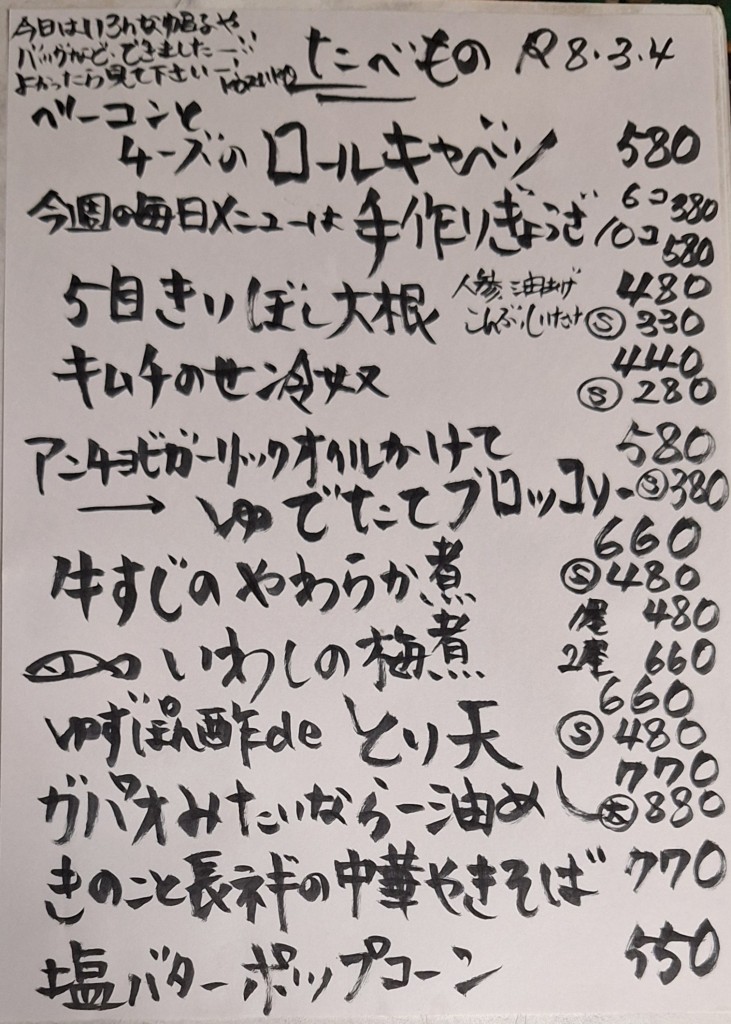 今日はいろんな帽子や
バッグなど、できましたー!!
よかったら見て下さいー!
たべもの R8.3.4
ベーコンと
チーズの ロールキャベツ 580
今週の毎日メニューは 手作りぎょうざ 6コ 380
10コ 580
5目きりぼし大根 人参、油あげ 480
こんぶ、しいたけ Ⓢ 330
キムチのせ冷奴 440
Ⓢ 280
アンチョビガーリックオイルかけて 580
→ ゆでたてブロッコリー Ⓢ 380
牛すじのやわらか煮 660
Ⓢ 480
いわしの梅煮 1尾 480
2尾 660
ゆずぽん酢de とり天 660
Ⓢ 480
ガパオみたいならー油めし 770
㊛ 880
きのこと長ネギの中華やきそば 770
塩バターポップコーン 550